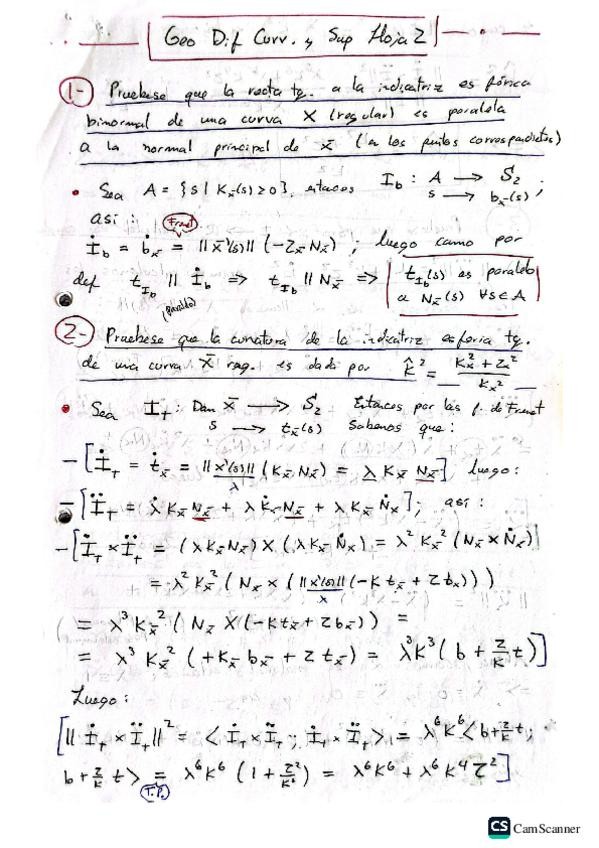 Geo Dif Curv. y Sup Hoja 2
1- Pruebese que la recta tg. a la indicatriz esférica
binormal de una curva X (regular) es paralela
a la normal principal de x̄ (en los puntos correspondientes)
• Sea A = {s | K_x̄(s) ≥ 0}, entonces I_b : A → S_2 ;
s → b_x̄(s)
así : Frenet
İ_b = ḃ_x̄ = ||x̄'(s)|| (-Z_x̄ N_x̄) ; luego como por
def t_{I_b} || İ_b => t_{I_b} || N_x̄ => t_{I_b}(s) es paralelo
(paralelo) a N_x̄(s) ∀s∈A
2- Pruebese que la curvatura de la indicatriz esferia tg.
de una curva X̄ reg. es dada por K̂² = (K_x̄² + Z_x̄²) / K_x̄²
• Sea I_T : Dom x̄ → S_2 Entonces por las f. de Frenet
s → t_x̄(s) sabemos que :
- [İ_T = ṫ_x̄ = ||x̄'(s)|| (K_x̄ N_x̄) = λ K_x̄ N_x̄] luego :
λ
- [Ï_T = λ̇ K_x̄ N_x̄ + λ K̇_x̄ N_x̄ + λ K_x̄ Ṅ_x̄] ; así :
- [İ_T × Ï_T = (λ K_x̄ N_x̄) × (λ K_x̄ Ṅ_x̄) = λ² K_x̄² (N_x̄ × Ṅ_x̄)
= λ² K_x̄² (N_x̄ × (||x̄'(s)|| (-K t_x̄ + Z b_x̄)))
λ
= λ³ K_x̄² (N_x̄ × (-K t_x̄ + Z b_x̄)) =
= λ³ K_x̄² (+K_x̄ b_x̄ + Z t_x̄) = λ³K³ (b + Z/K t)]
Luego :
[||İ_T × Ï_T||² = < İ_T × Ï_T ; İ_T × Ï_T > = λ⁶ K⁶ < b + Z/K t ;
b + Z/K t > = λ⁶ K⁶ (1 + Z²/K²) = λ⁶ K⁶ + λ⁶ K⁴ Z²]
T.P.
CS CamScanner